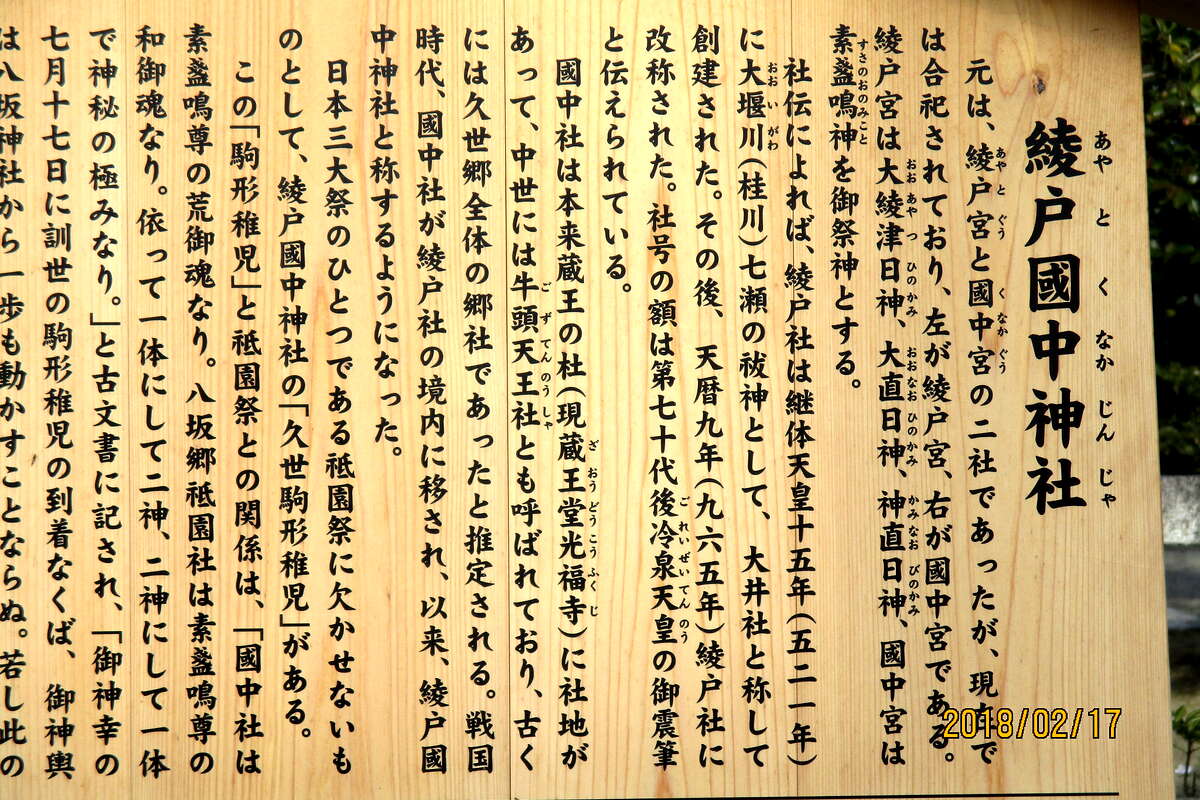 綾戸國中神社
あやとくなかじんじゃ
元は、綾戸宮と國中宮の二社であったが、現在で
あやとぐう くなかぐう
は合祀されており、左が綾戸宮、右が國中宮である。
綾戸宮は大綾津日神、大直日神、神直日神、國中宮は
おおあやつひのかみ おおなおひのかみ かみなおびのかみ
素盞嗚神を御祭神とする。
すさのおのみこと
社伝によれば、綾戸社は継体天皇十五年(五二一年)
に大堰川(桂川)七瀬の祓神として、大井社と称して
おおいがわ
創建された。その後、天暦九年(九六五年)綾戸社に
改称された。社号の額は第七十代後冷泉天皇の御震筆
ごれいぜいてんのう
と伝えられている。
國中社は本来蔵王の杜(現蔵王堂光福寺)に社地が
ざおうどうこうふくじ
あって、中世には牛頭天王社とも呼ばれており、古く
ごずてんのうしゃ
には久世郷全体の郷社であったと推定される。戦国
時代、國中社が綾戸社の境内に移され、以来、綾戸國
中神社と称するようになった。
日本三大祭のひとつである祗園祭に欠かせないも
のとして、綾戸國中神社の「久世駒形稚児」がある。
この「駒形稚児」と祗園祭との関係は、「國中社は
素盞嗚尊の荒御魂なり。八坂郷祗園社は素盞嗚尊の
和御魂なり。依って一体にして二神、二神にして一体
で神秘の極みなり。」と古文書に記され、「御神幸の
七月十七日に訓世の駒形稚児の到着なくば、御神輿
は八坂神社から一歩も動かすことならぬ。若し此の
2018/02/17